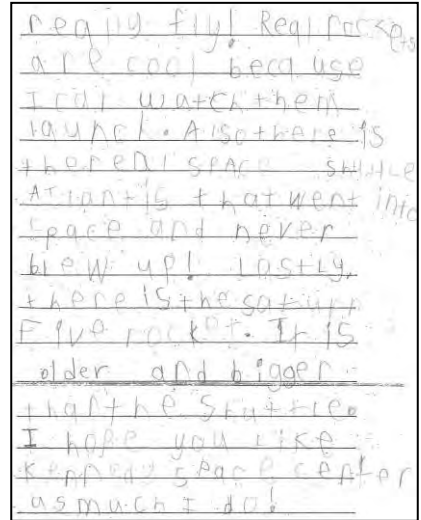 really fly! Real rockets
are cool because
I can watch them
launch. Also there is
the real space shuttle
Atlantis that went into
space and never
blew up! Lastly,
there is the saturn
Five rocket. It is
older and bigger
than the Shuttle.
I hope you like
Kennedy space center
as much I do!